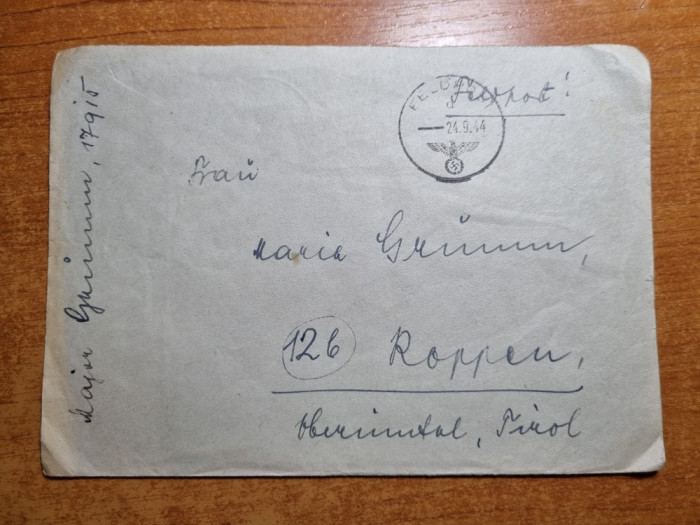 Feldpost!
FELDPOST
24.9.44
Frau
Maria Grümm,
126 Roppen,
Oberinntal, Tirol
Major Grümm, 17915